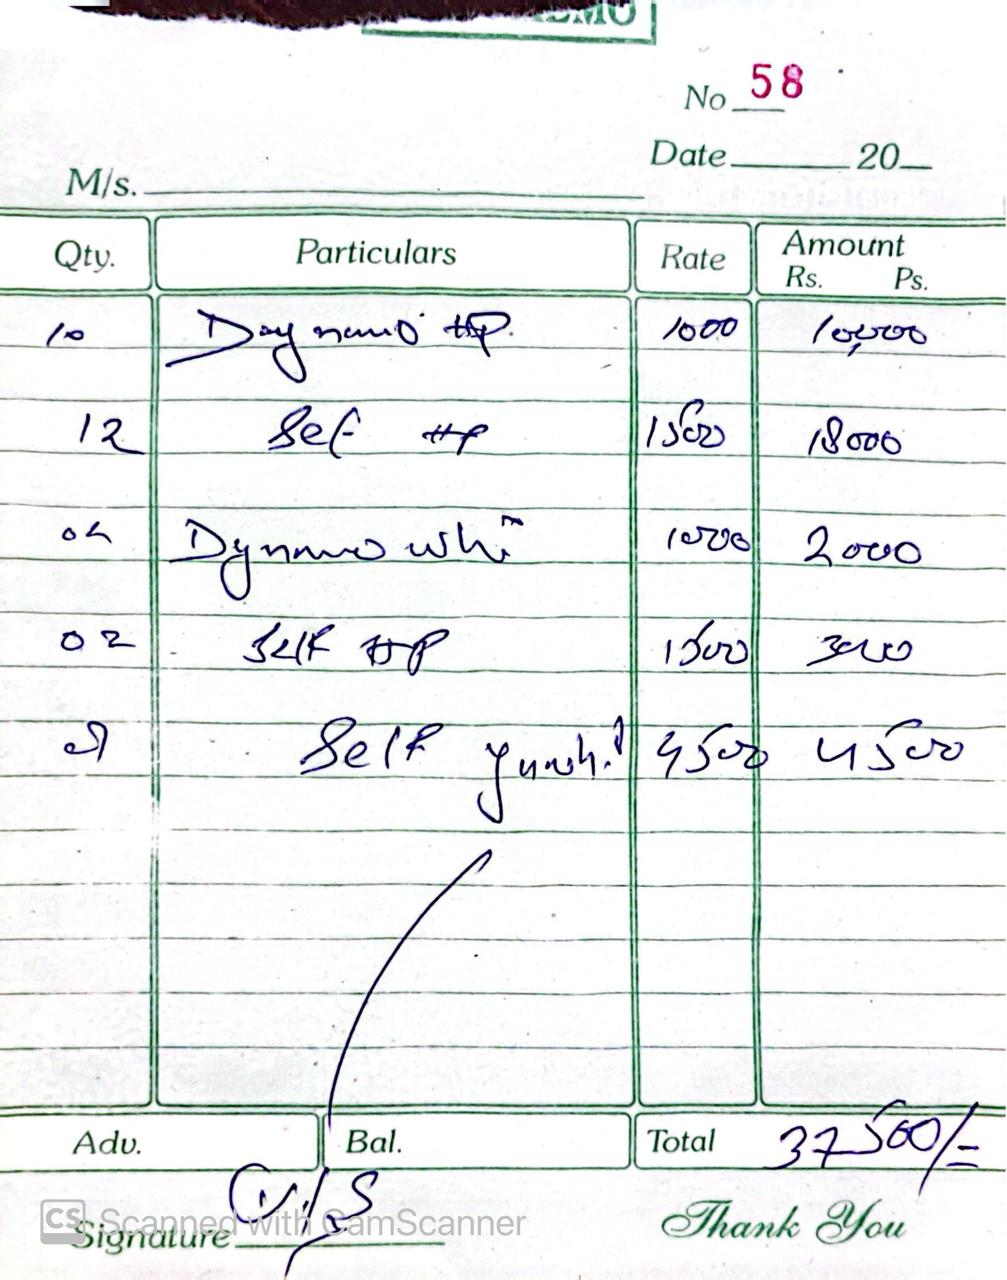 No 58
Date 20
M/s.
Qty. Particulars Rate Amount
Rs. Ps.
10 Daynamo HP. 1000 10,000
12 Self HP 1500 18000
Dynamo 1000 2000
02 Self HP 1500 3000
01 Self 4500 4500
Adv. Bal. Total 37500/=
CS Scanned with CamScanner
Signature Thank You